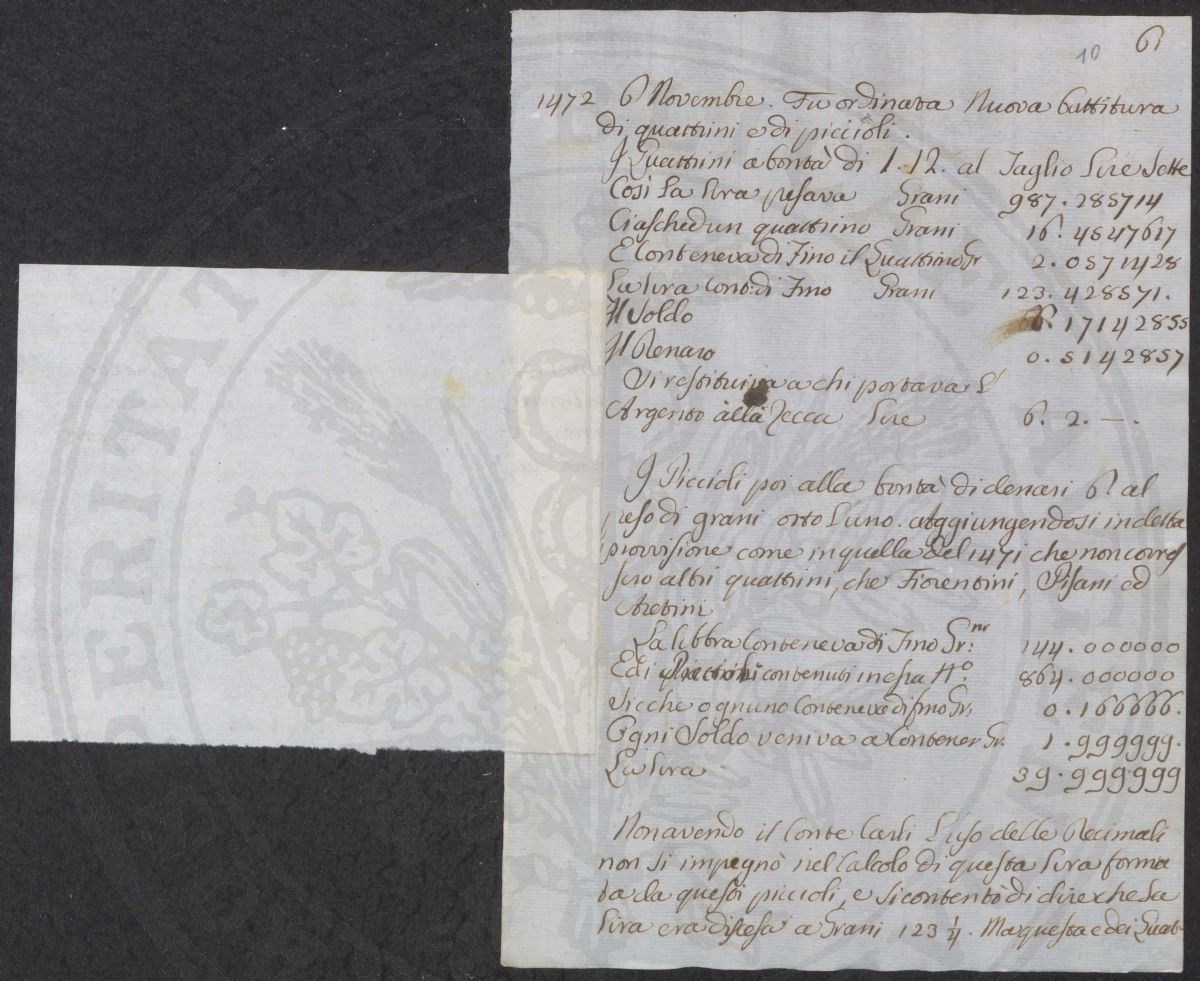 10 6
1472 6 Novembre. Fu ordinata Nuova battitura
di quattrini e di piccioli.
J Quattrini a bontà di 1.12. al Taglio Lire Sette
Così La Lira pesava Grani 987.285714
Ciaschedun quattrino Grani 16.4547617
E Conteneva di Fino il Quattrino Gr 2.0571428
La Lira Cont: di Fino Grani 123.428571.
Jl Soldo 6.17142855
Jl Denaro 0.5142857
Si restituiva a chi portava L'
Argento alla Zecca Lire 6. 2. —.
J Piccioli poi alla bontà di denari 6 al
peso di grani otto l'uno. Aggiungendosi in detta
provvisione come in quella del 1471 che non corres
sero altri quattrini, che Fiorentini, Pisani ed
Aretini
La libbra Conteneva di Fino Gr.ni 144.000000
Ed i contenuti in essa N.o 864.000000
Sicche ognuno Conteneva di fino Gr. 0.166666.
Ogni Soldo veniva a Contener Gr. 1.999999.
La Lira 39.999999
Non avendo il Conte Carli L'uso delle Decimali
non si impegnò nel Calcolo di questa Lira forma
ta da questi piccioli, e si contentò di dire che La
Lira era discesa a Grani 123 1/4. Ma questa e dei Quat-
PERITAT